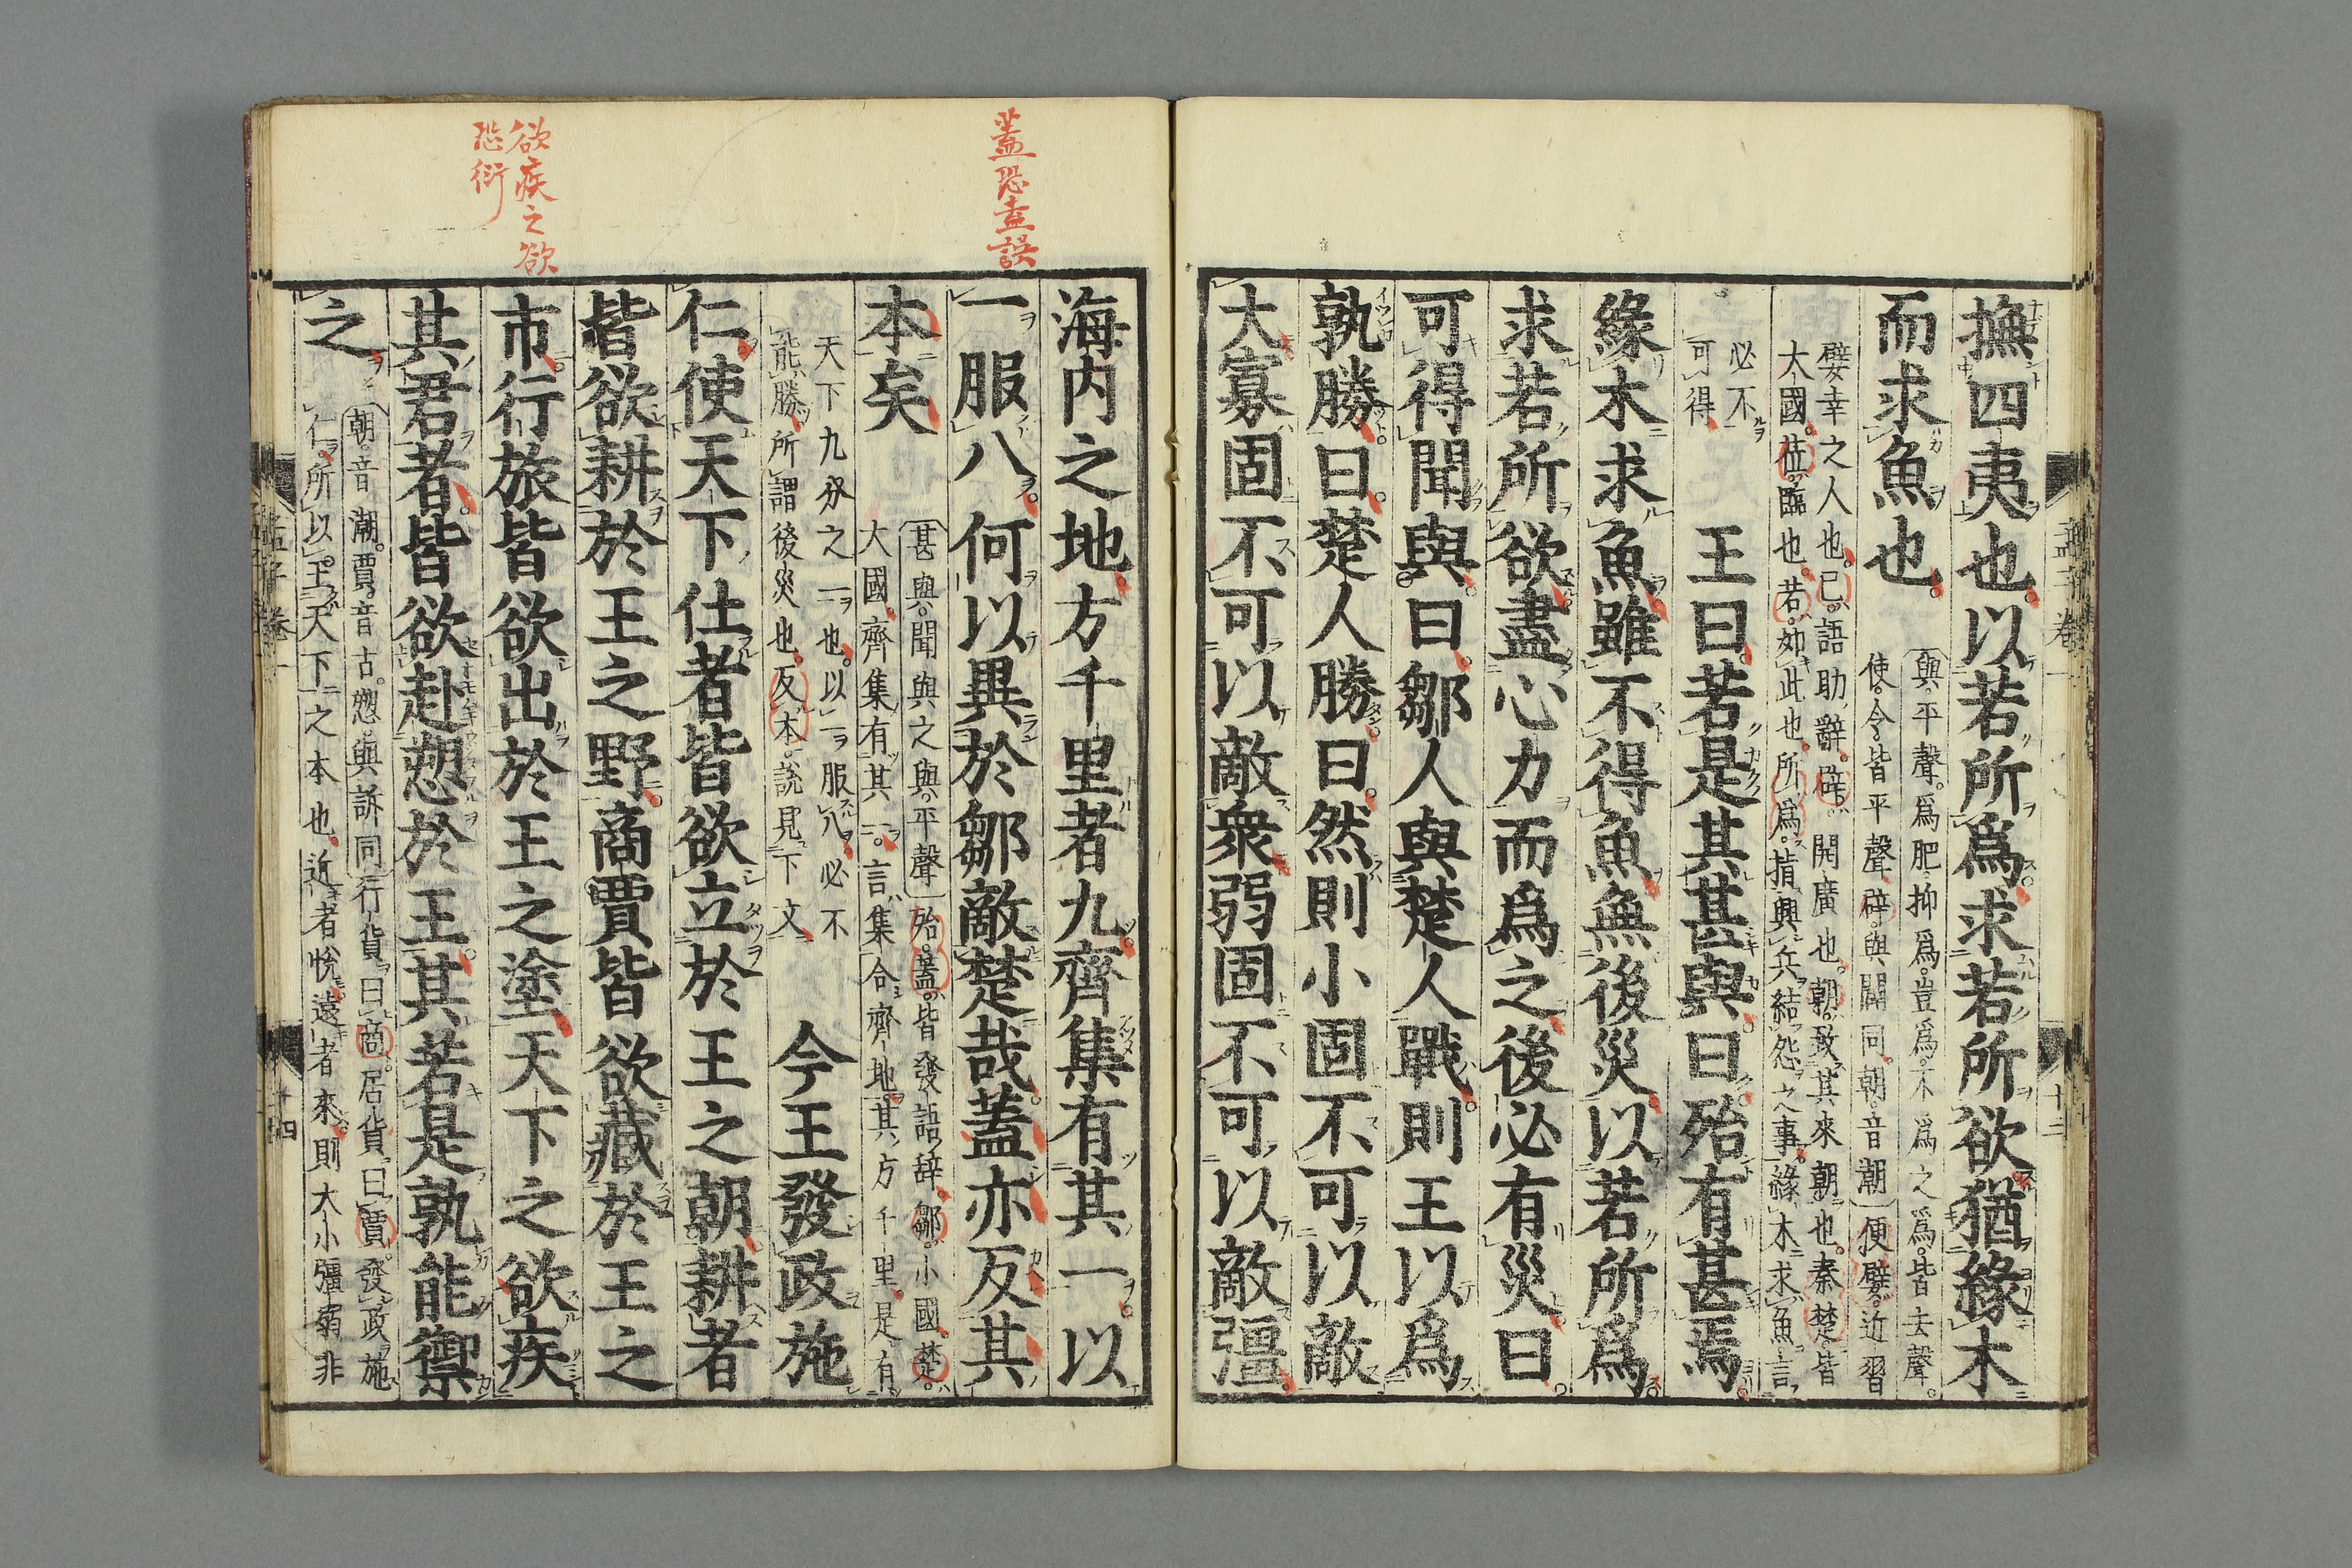 撫四夷也以若所爲求若所欲猶緣木
而求魚也
與平聲爲肥抑爲豈爲不爲之爲皆去聲
使令皆平聲辟與闢同朝音朝便嬖近習
嬖幸之人也已語助辭辟開廣也朝致其來朝也秦楚皆
大國莅臨也若如此也所爲指興兵結怨之事緣木求魚言
必不
可得
王曰若是其甚與曰殆有甚焉
緣木求魚雖不得魚無後災以若所爲
求若所欲盡心力而爲之後必有災曰
可得聞與曰鄒人與楚人戰則王以爲
孰勝曰楚人勝曰然則小固不可以敵
大寡固不可以敵衆弱固不可以敵彊
海内之地方千里者九齊集有其一以
一服八何以異於鄒敵楚哉蓋亦反其
本矣
甚與聞與之與平聲殆蓋皆發語辞鄒小國楚
大國齊集有其一言集合齊地其方千里是有
天下九分之一也以一服八必不
能勝所謂後災也反本説見下文
今王發政施
仁使天下仕者皆欲立於王之朝耕者
皆欲耕於王之野商賈皆欲藏於王之
市行旅皆欲出於王之塗天下之欲疾
其君者皆欲赴愬於王其若是孰能禦
之
朝音潮賈音古愬與訴同行貨曰商居貨曰賈發政施
仁所以王天下之本也近者悅遠者來則大小彊弱非
蓋恐盍誤
欲疾之欲
恐衍
孟子卷一
十四